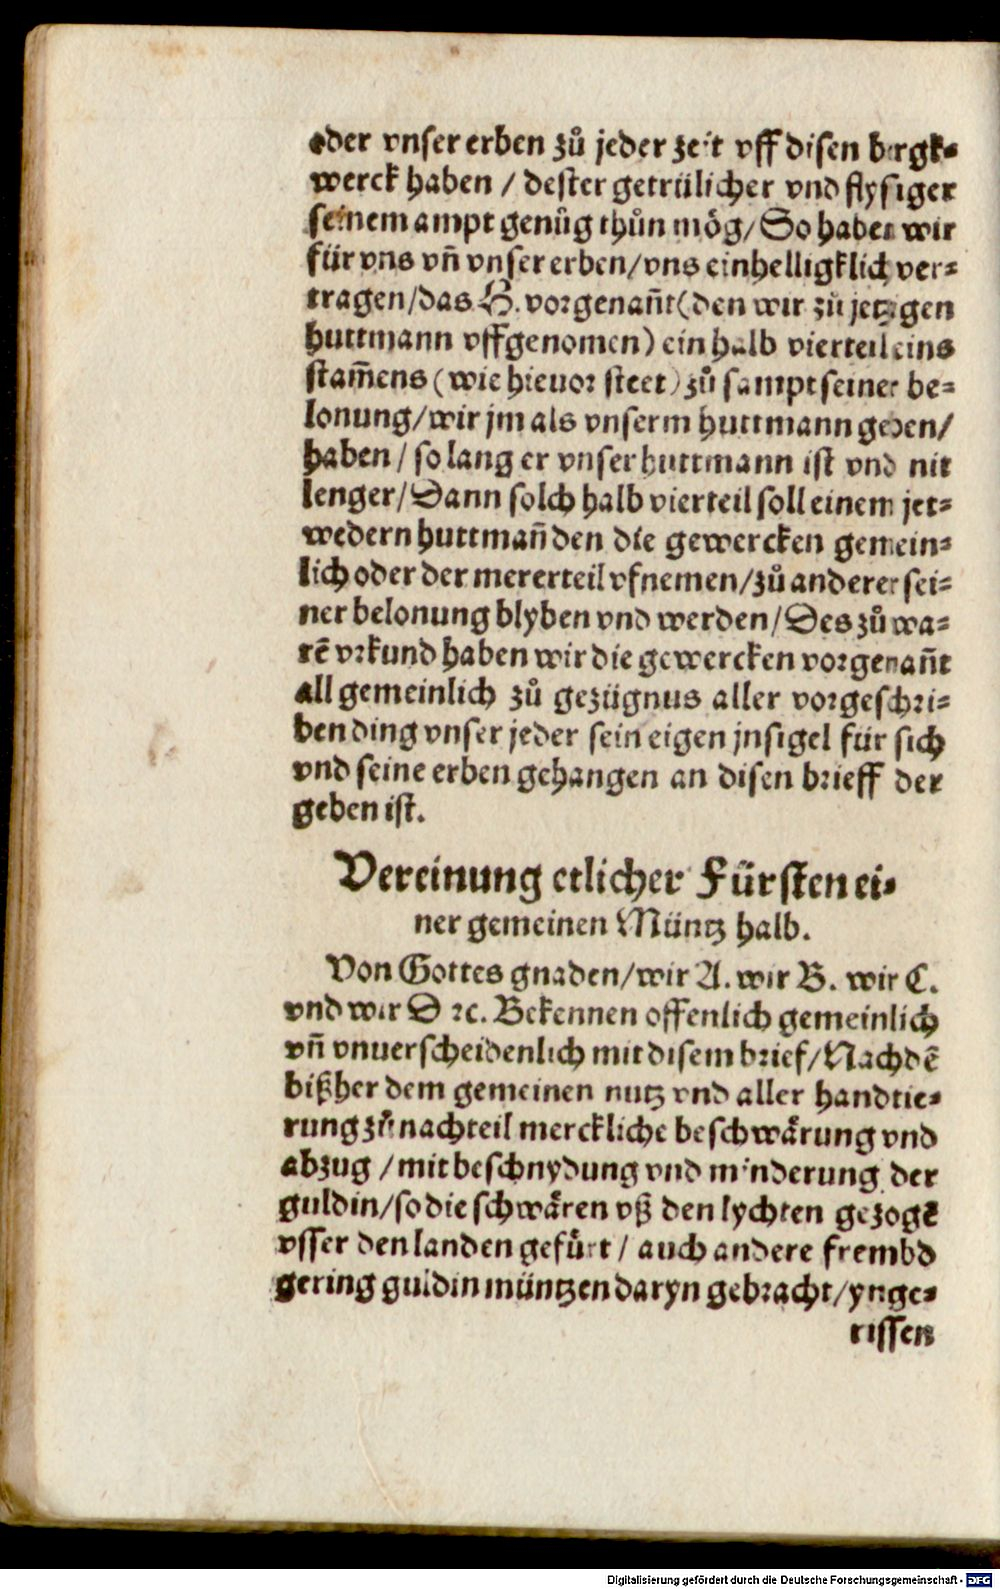 oder vnser erben zů jeder zeit vff disen bergk⸗
werck haben / dester getrülicher vnd flysiger
seinem ampt genůg thůn mög/ So haben wir
für vns vñ vnser erben/vns einhelligklich ver⸗
tragen/das H. vorgenañt (den wir zů jetzigen
huttmann vffgenomen) ein halb vierteil eins
stam̃ens (wie hieuor steet) zů sampt seiner be⸗
lonung/wir jm als vnserm huttmann geben/
haben / so lang er vnser huttmann ist vnd nit
lenger/ Dann solch halb vierteil soll einem jet⸗
wedern huttmañ den die gewercken gemein⸗
lich oder der mererteil vfnemen/zů anderer sei⸗
ner belonung blyben vnd werden/ Des zů wa⸗
rē vrkund haben wir die gewercken vorgenañt
all gemeinlich zů gezügnus aller vorgeschri⸗
ben ding vnser jeder sein eigen jnsigel für sich
vnd seine erben gehangen an disen brieff der
geben ist.
Vereinung etlicher Fürsten ei⸗
ner gemeinen Müntz halb.
Von Gottes gnaden/wir A. wir B. wir C.
vnd wir D ꝛc. Bekennen offenlich gemeinlich
vñ vnuerscheidenlich mit disem brief/Nachdē
bißher dem gemeinen nutz vnd aller handtie⸗
rung zů nachteil merckliche beschwärung vnd
abzug / mit beschnydung vnd minderung der
guldin/so die schwären vß den lychten gezogē
vsser den landen gefůrt / auch andere frembd
gering guldin müntzen daryn gebracht/ynge⸗
rissen
Digitalisierung gefördert durch die Deutsche Forschungsgemeinschaft - DFG